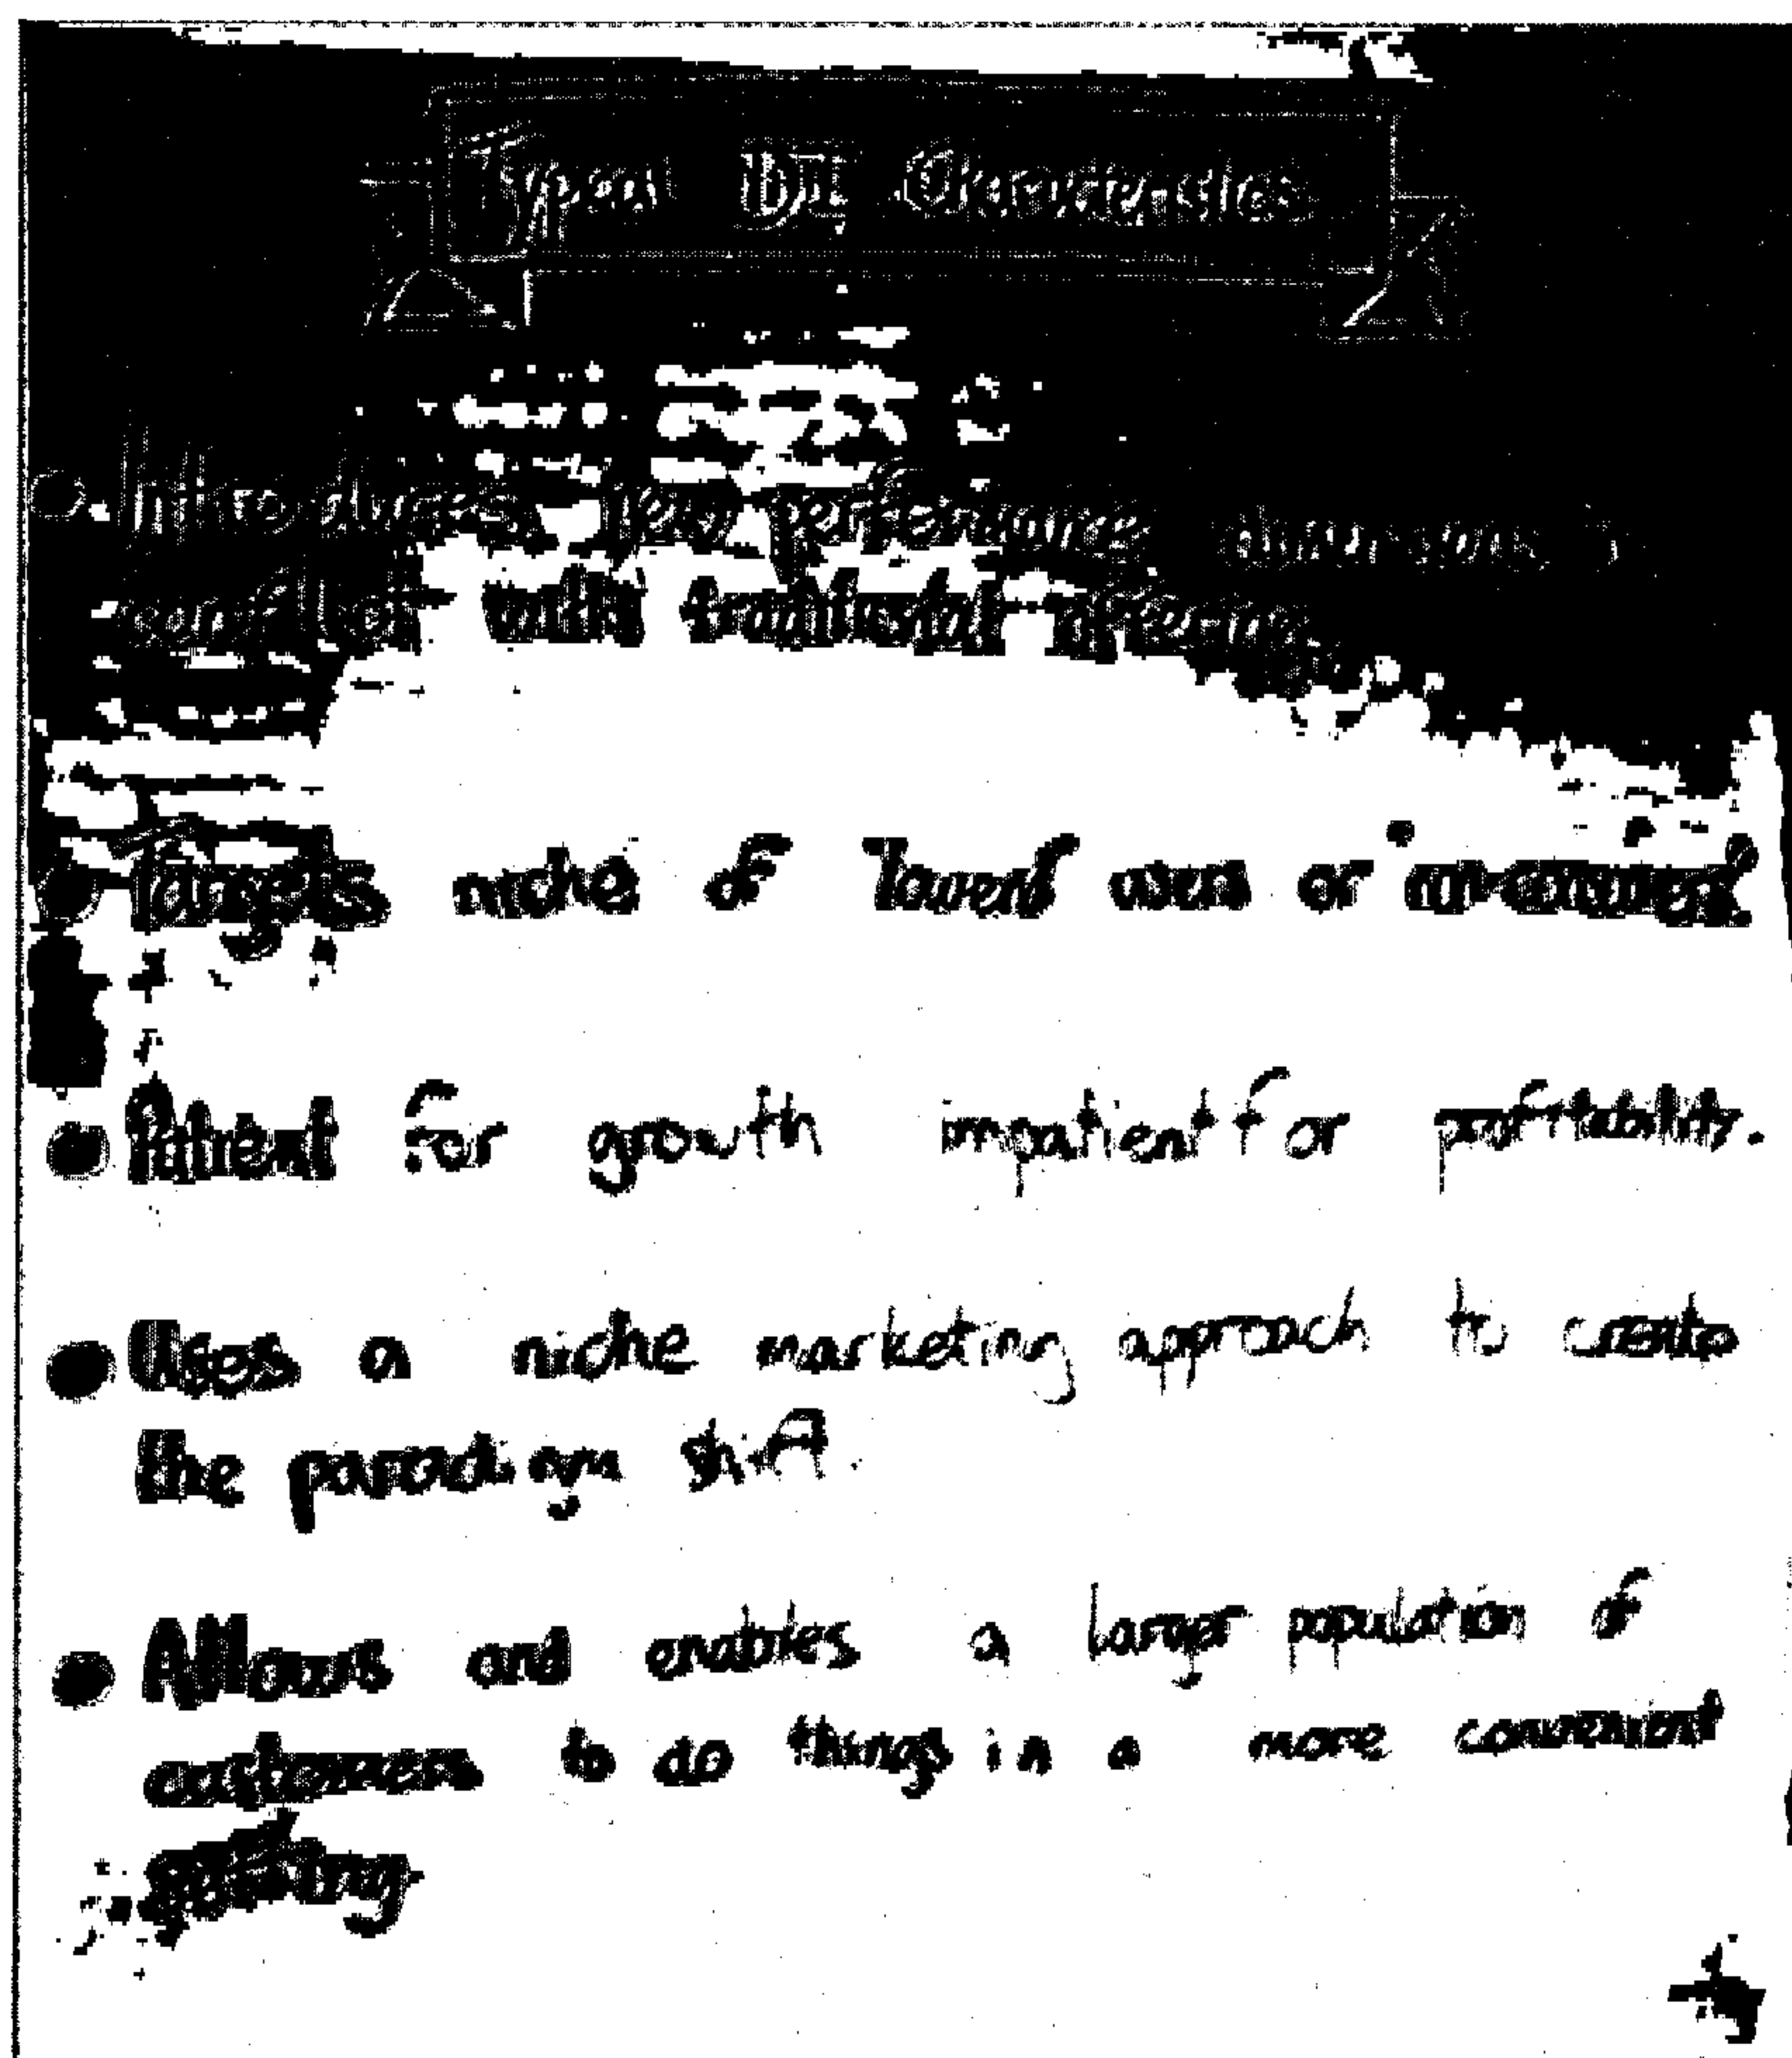 Typical DI Characteristics
Introduces new performance dimensions
conflict with traditional offering
Targets niche of lowend users or
Patient for growth impatient for profitability.
Uses a niche marketing approach to create
the paradigm shift.
Allows and enables a larger population of
customers to do things in a more convenient
setting